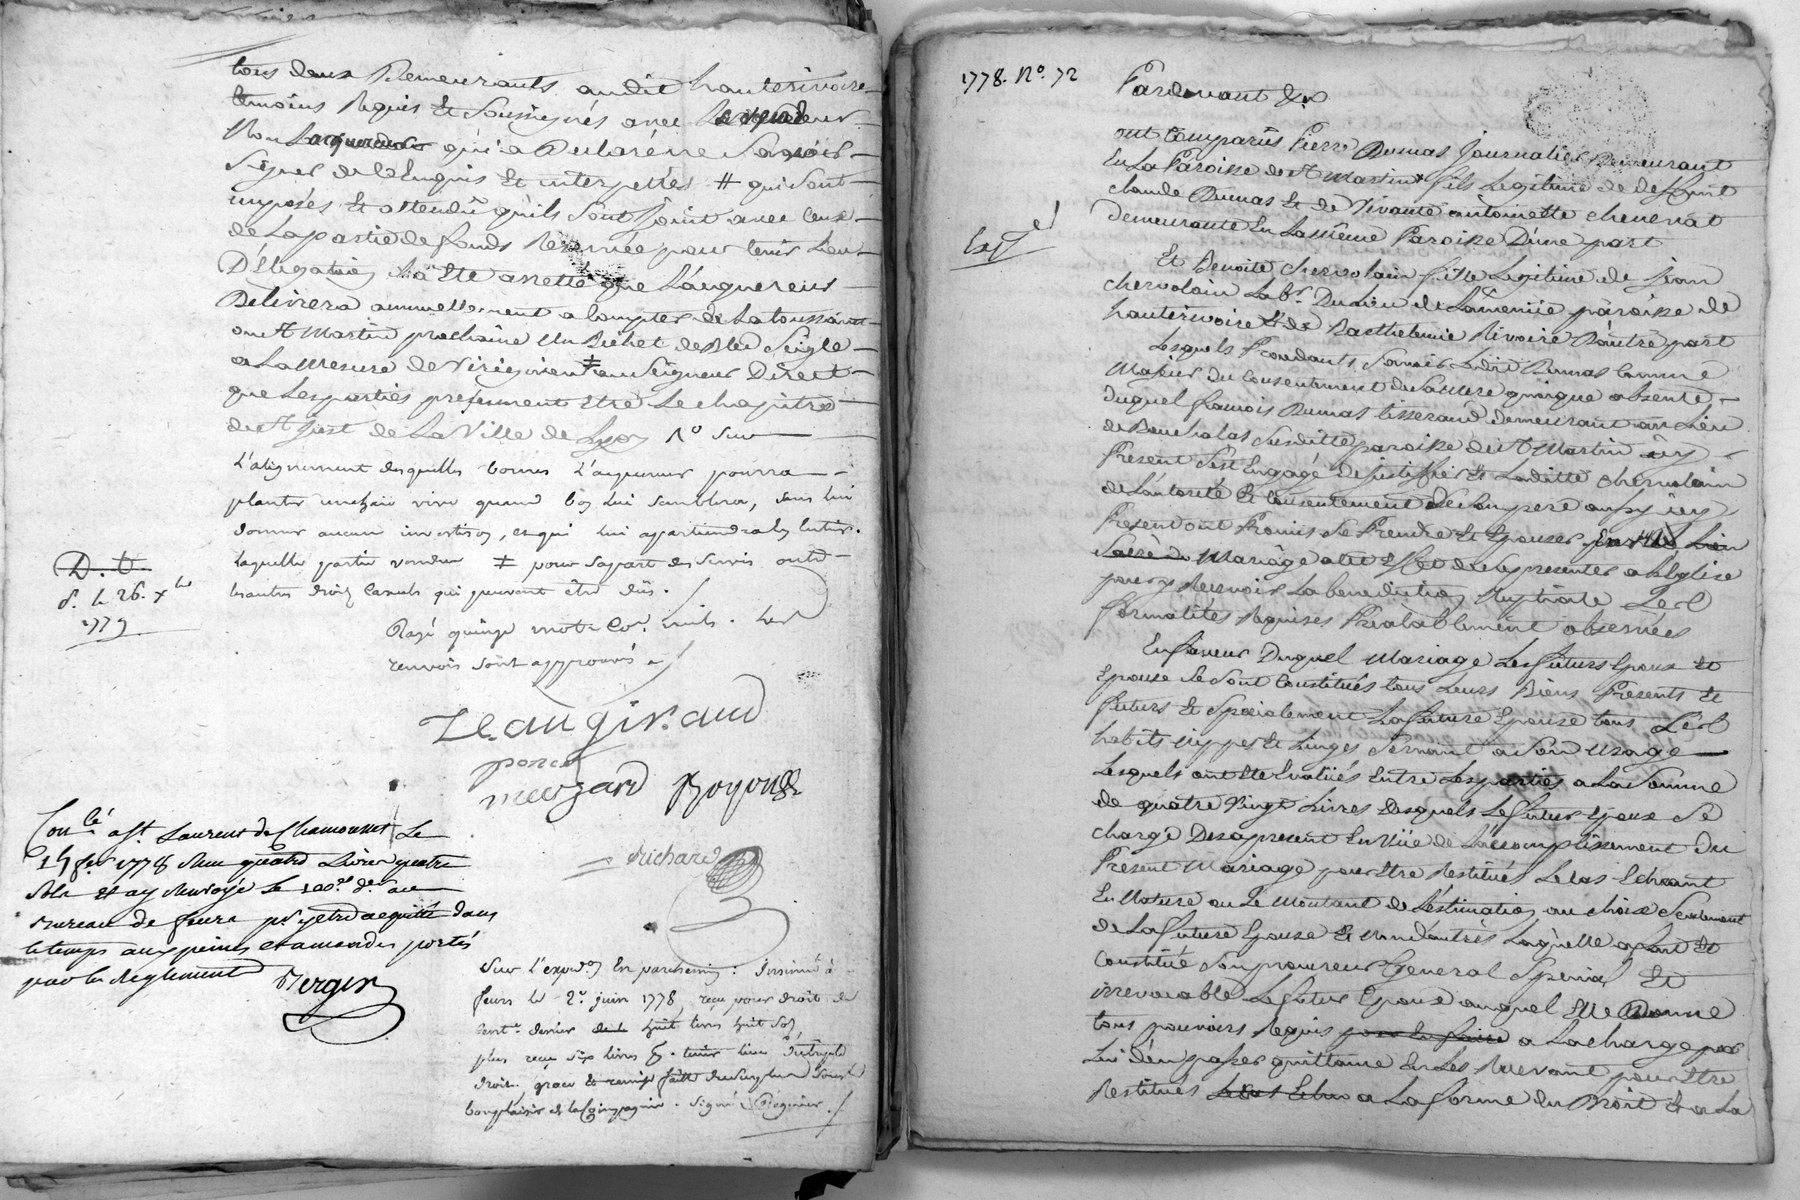 tous deux Demeurants audit hauterivoire
temoins Requis Et Soussignés avec
Non qui a Declaré ne Sçavoir
Signer de ce Enquis Et interpellés # qui Sont
imposés Et attendu qu'ils Sont Joint avec ceux
de La partie de fonds Reservée pour tenir Lieu
Délégation il a Ete arretté que L'aquereur
Delivrera annuellement a Compter de La toussaint
ou St Martin prochaine Un Bichet de Bled Seigle
a La Mesure de ‡ au Seigneur Direct
que Les parties presument Etre Le chapitre
de St Just de La Ville de Lyon 1º Sur
L'alignement desquelles bornes L'aquereur pourra
planter une haie vive quand bon lui Semblera, Sans lui
donner aucun et qui lui apartiendra en Entier.
laquelle partie vendue ‡ pour Sa part des Servis outre
les autres droits Casuels qui peuvent être dûs.
Rayé quinze mots Cor. nuls.
renvois Sont approuvés
D. U.
d. le 26. xbre
1779
Jean giraud
poncet
meuzard Boyoud
Richard
Conlé a St. Laurent de Chamousset Le
1778 Reçu quatre Livres quatre
Sols Et ay Renvoyé le 100e de. au
Bureau de feurs pr y etre acquitté dans
le temps aux peines et amandes portés
par le Reglement Berger
Sur l'expedon En parchemin: Insinué à
feurs le 2e juin 1778, reçu pour droit de
centme denier huit livres huit Sols,
plus reçu Six livres
droit. grace Et remise faitte du Surplus Sous le
bon plaisir de la Compagnie. Signé
1778. No. 72
Pardevant &a
ont Comparus Pierre Dumas Journalier Demeurant
En La Paroisse de St Martin fils Legitime de deffunt
claude Dumas Et de Vivante antoinette chenevat
demeurante En La même Paroisse D'une part
Expé
Et Benoite chervolain fille Legitime de jean
chervolain Labr. Du Lieu de paroisse de
hauterivoire Et de Barthelemie Rivoire D'autre part
Lesquels Procedants Sçavoir Ledit Dumas Comme
Majeur du Consentement de Sa Mere quoique absente
duquel françois Dumas tisserand demeurant au Lieu
de Susditte paroisse de St Martin icy
Present S'est Engagé de justiffier Et Laditte chervolain
de L'autorité Et Consentement de Son pere aussy icy
Present ont Promis Se Prendre Et Epouser par Lien
Sacré du Mariage a cet Effet de Se presenter a L'Eglise
pour y Recevoir La benediction Nuptiale Les
formalités Requises Préalablement observées
En faveur Duquel Mariage Les futurs Epoux Et
Epouse Se Sont Constitués tous Leurs Biens Presents Et
futurs Et Specialement La future Epouse tous Les
habits Nippes Et Linges Servant a Son Usage
Lesquels ont Ete Evalués Entre Les parties a La Somme
de quatre Vingt Livres Desquels Le futur Epoux Se
charge Des a present En Vüe de L'accomplissement du
Present Mariage pour Etre Restitués Le Cas Echeant
En Nature ou Le Montant de L'estimation au choix Seulement
de La future Epouse Et non d'autres Laquelle a fait Et
Constitué Son procureur General Special Et
irrevocable Le futur Epoux auquel Elle Donne
tous pouvoirs Requis pour En faire a La charge par
Lui d'en passer quittance En Les Recevant pour Etre
Restitués Le Cas Echeo a La forme du Droit Et a La